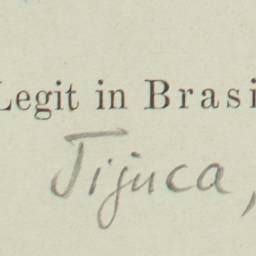 Legit in Brasi
Tijuca,